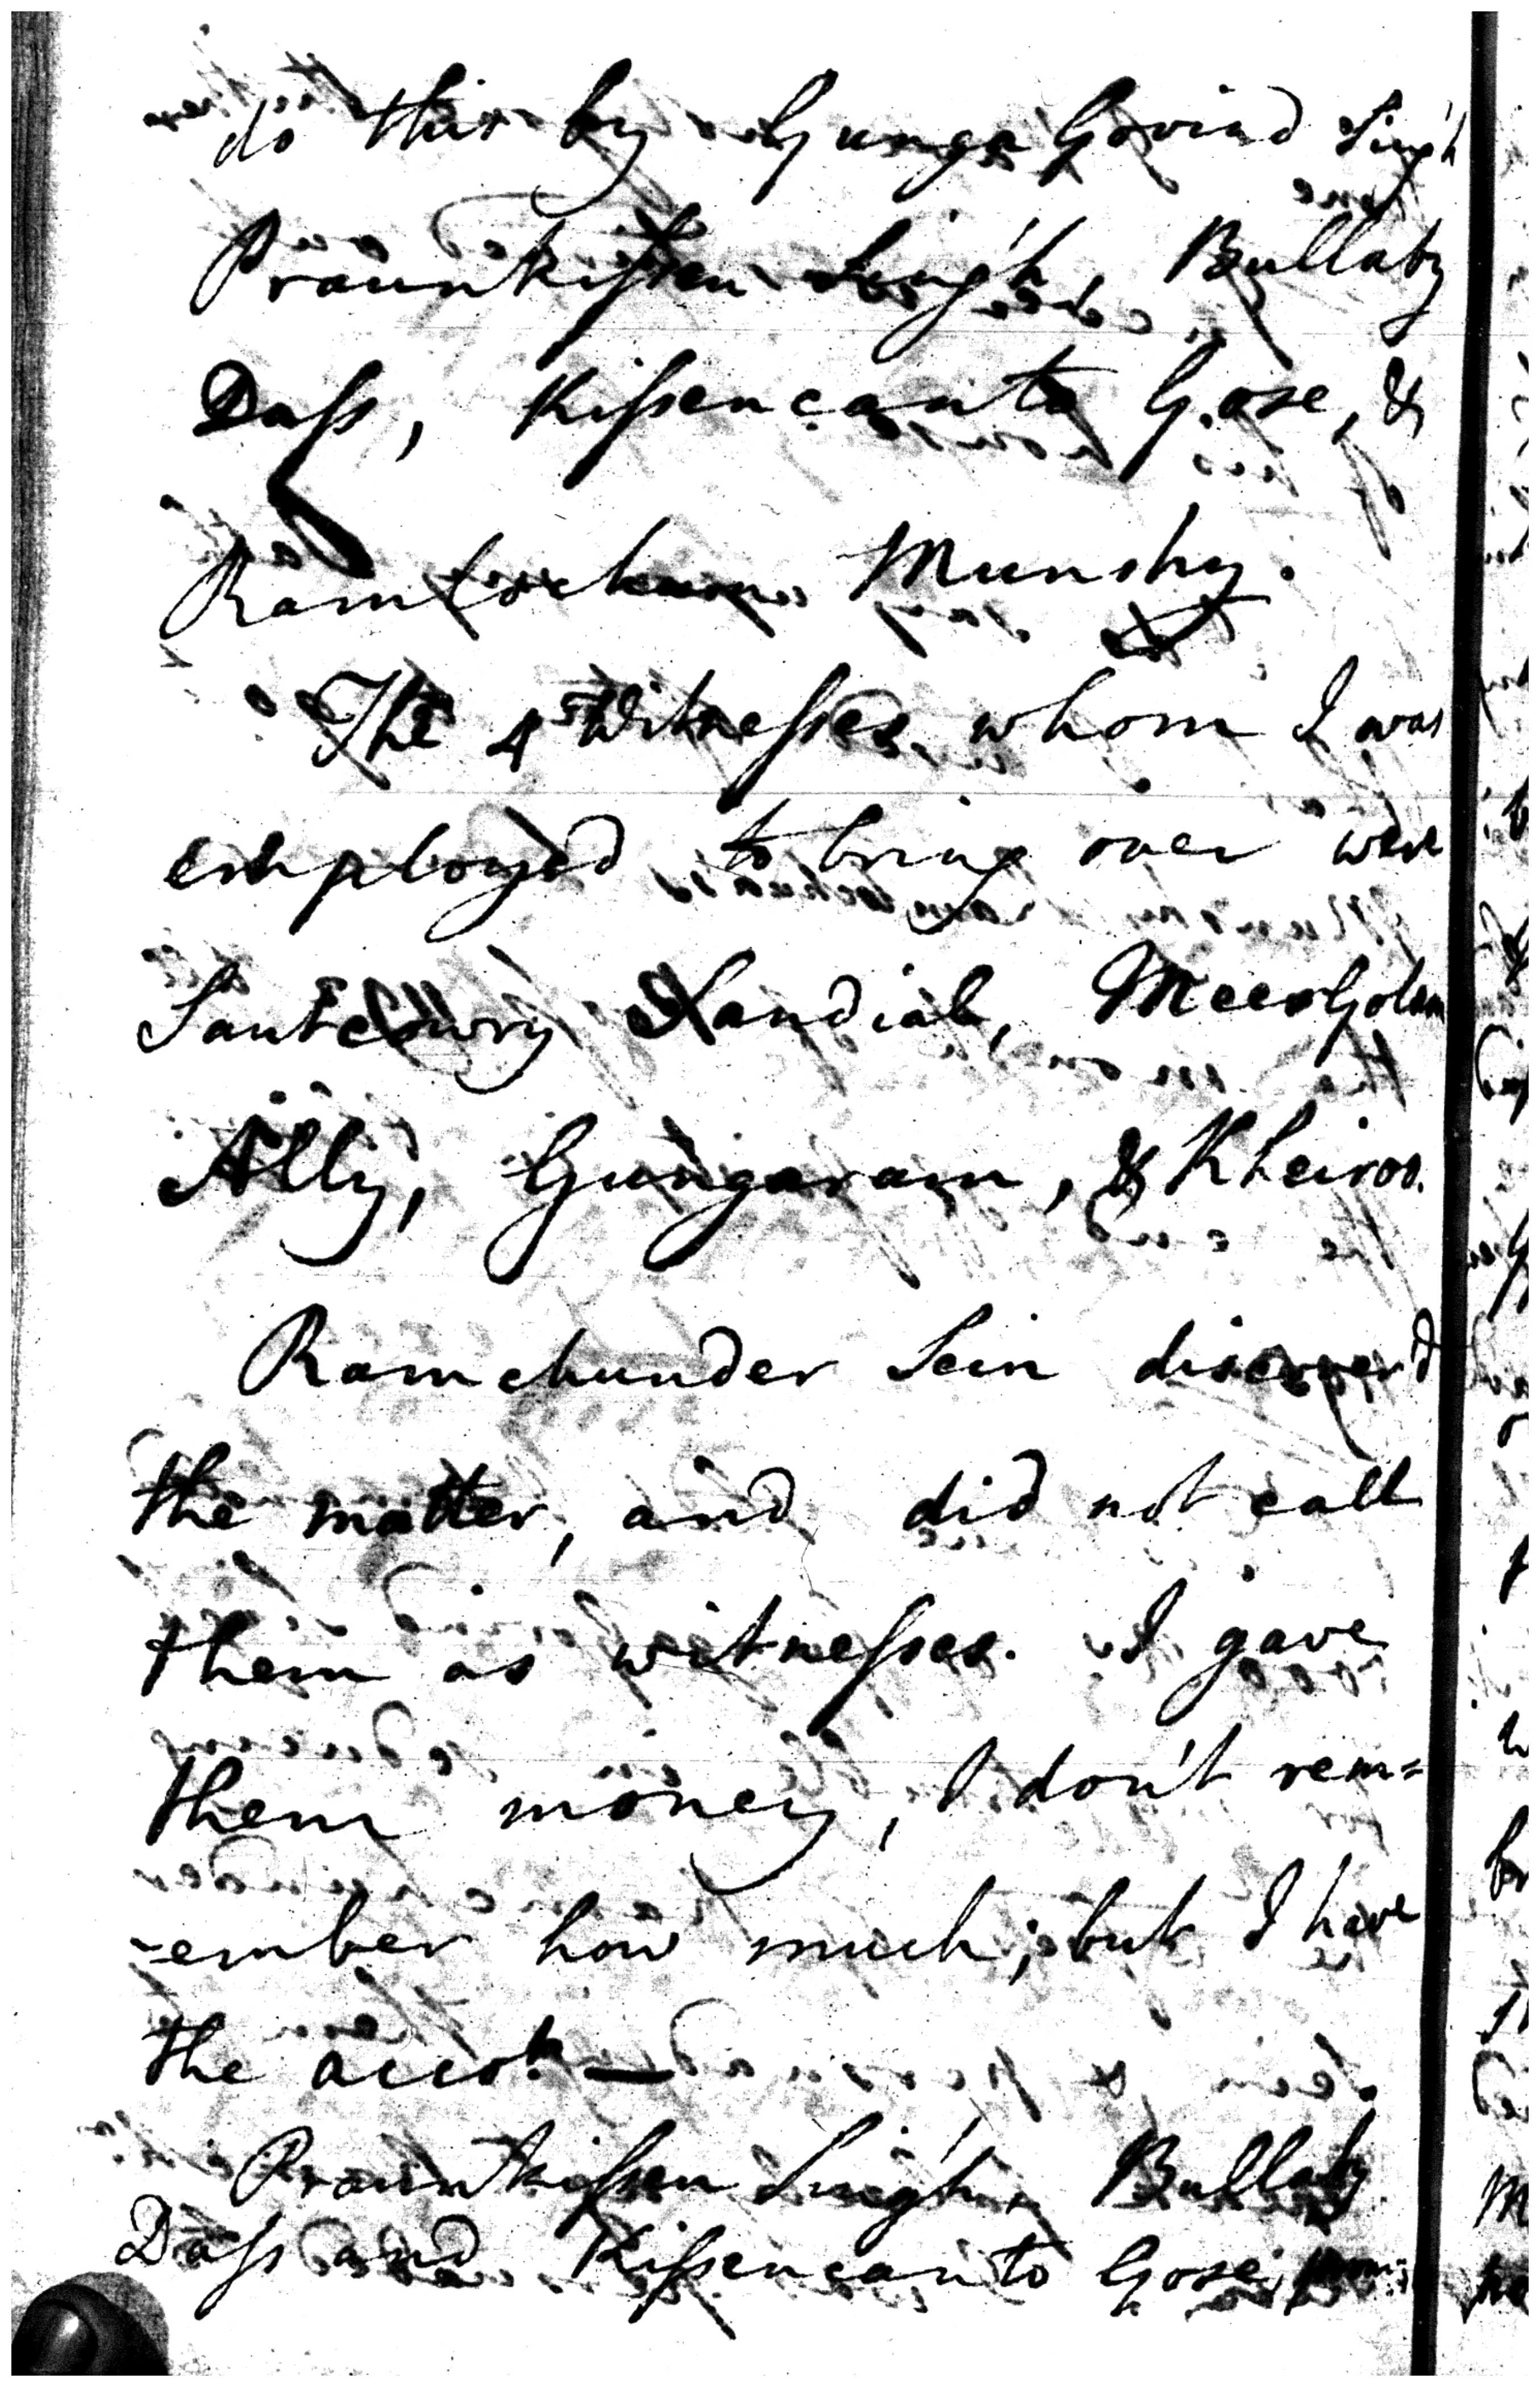 do this by Gunga Govind Singh
Praunkissen Singh, Bullaby
Dass, Kissencanto Gose, &
Ramlochun Munshy.
The 4 Witnesses whom I was
employed to bring over were
Santcowry Nandial, Meer Golam
Ally, Gungaram, & Kheiroo.
Ramchunder Sein discover'd
the matter, and did not call
them as witnesses. I gave
them money, I don't rem=
-ember how much; but I have
the accot. —
Praunkissen Singh, Bullaby
Dass and Kissencanto Gose